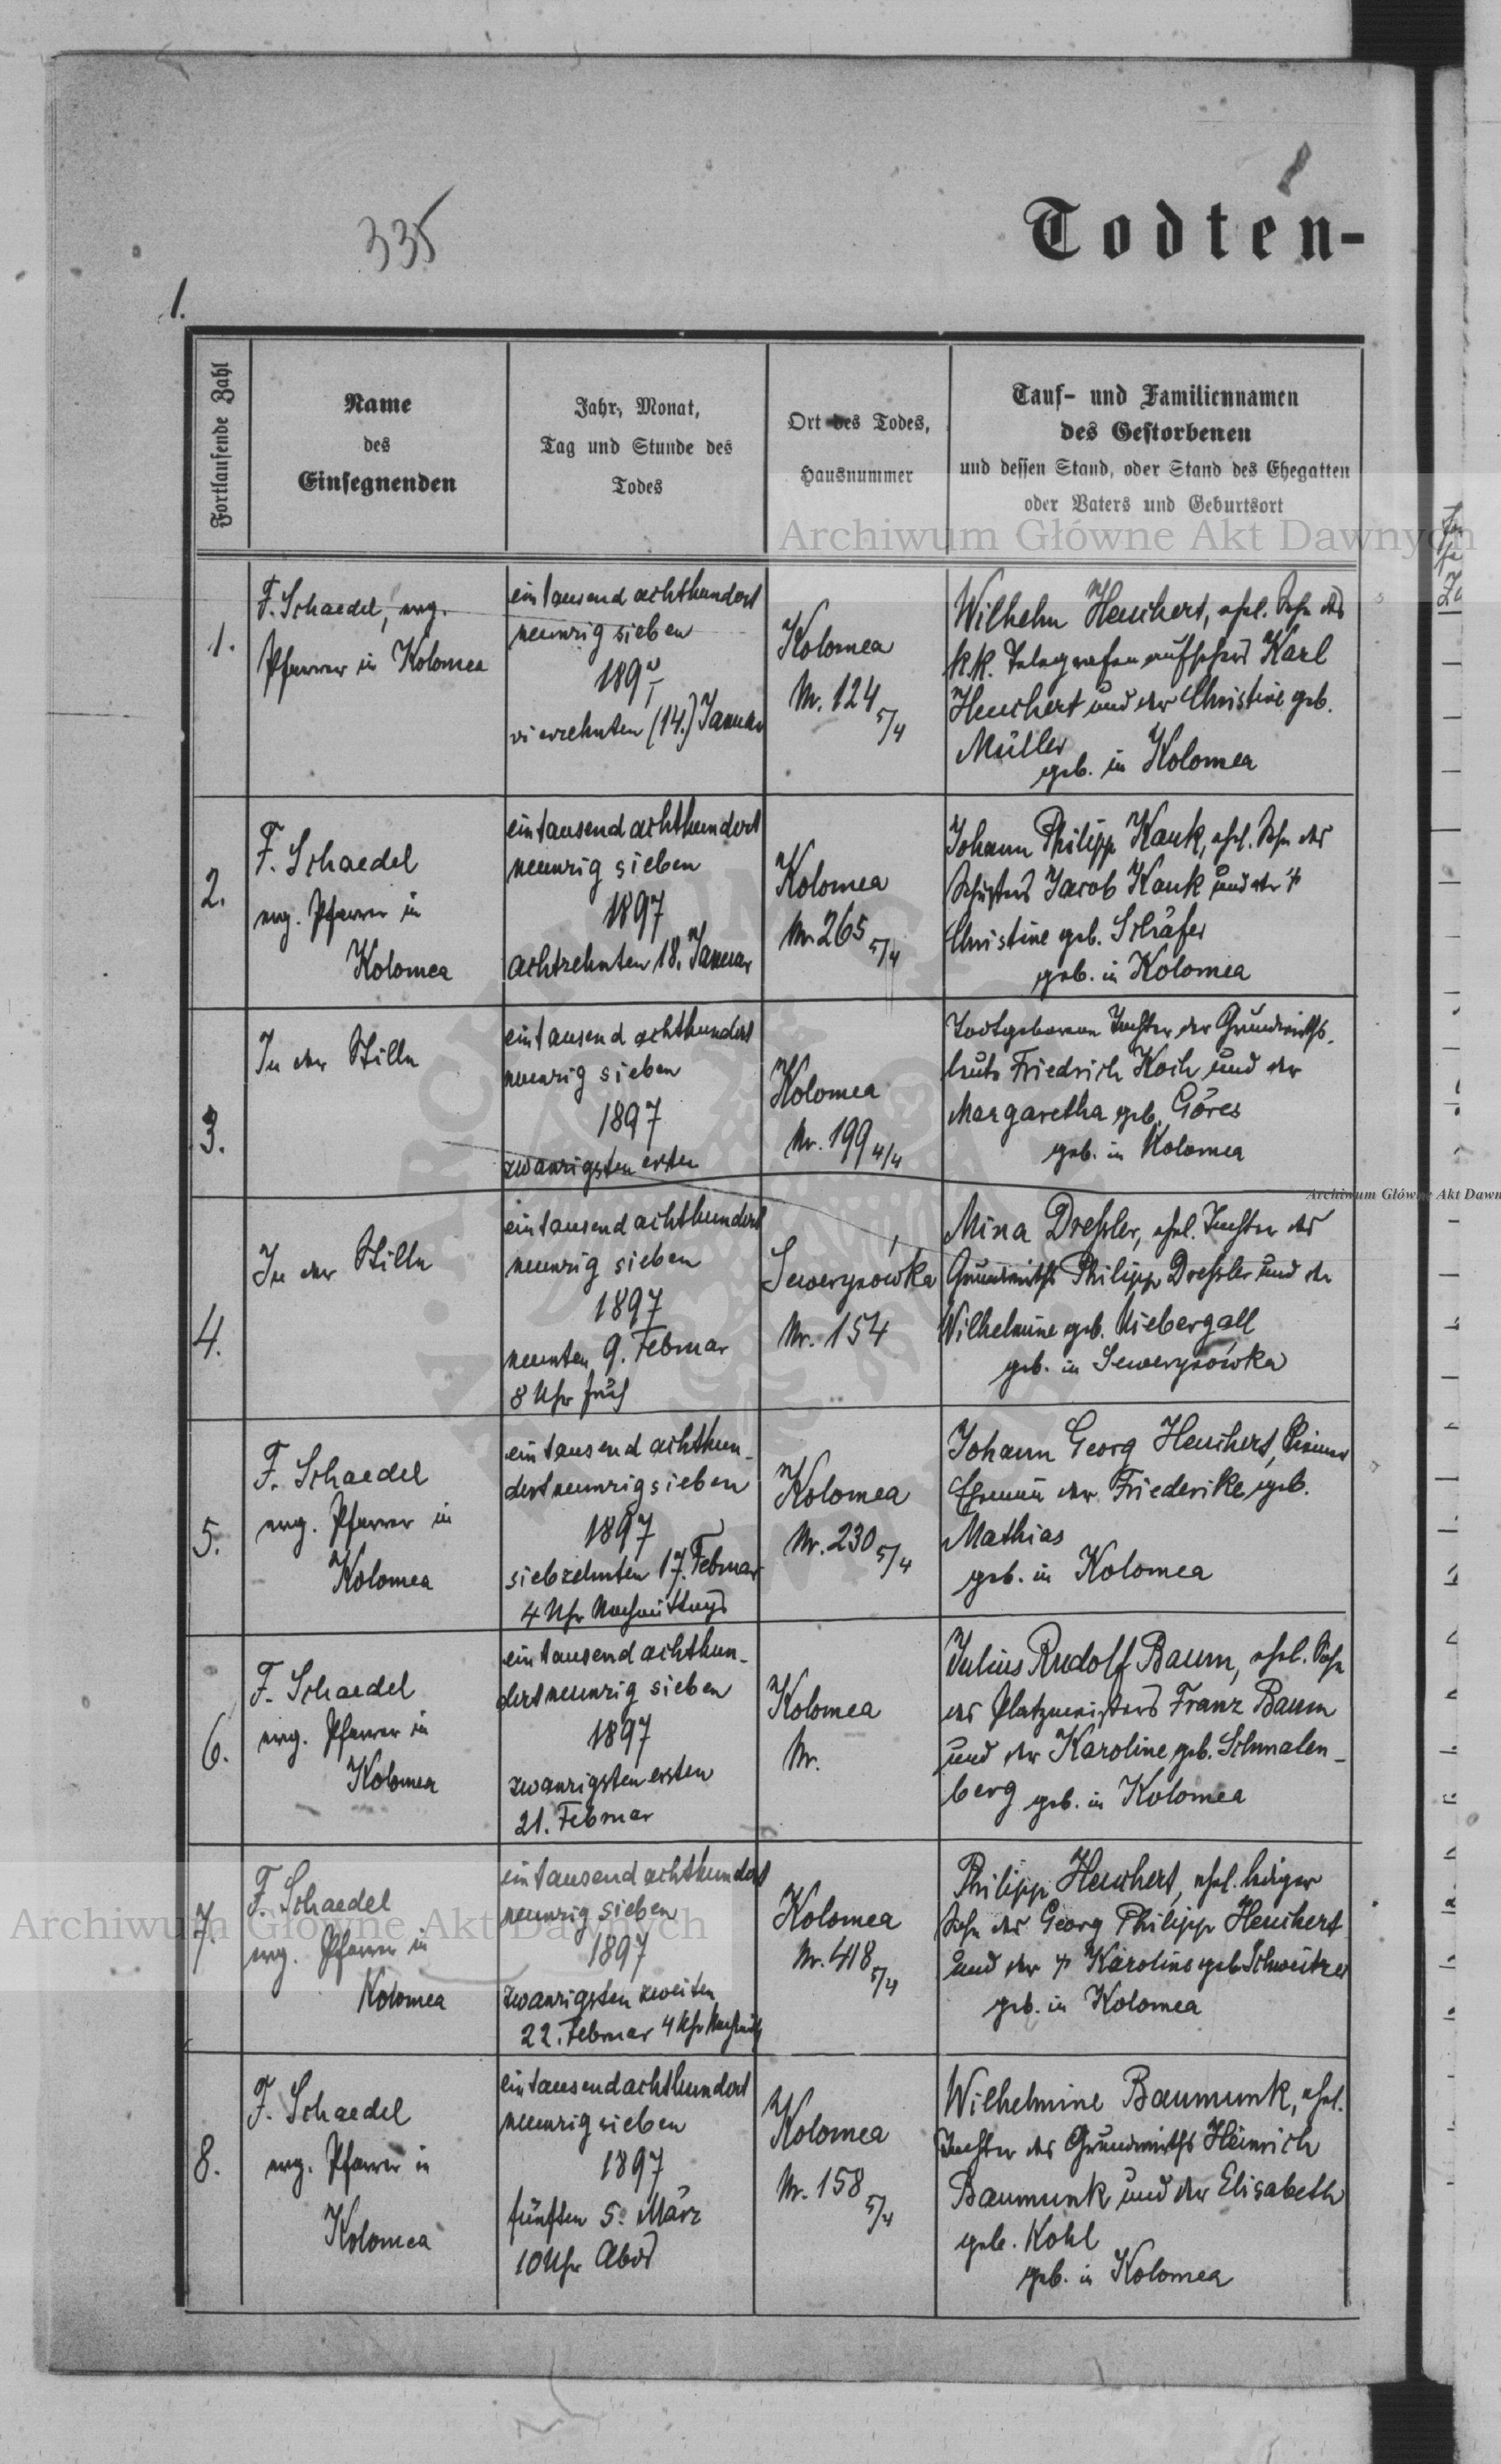 335
Todten-
1.
Fortlaufende Zahl
Name
des
Einsegnenden
Jahr, Monat,
Tag und Stunde des
Todes
Ort des Todes,
Hausnummer
Tauf- und Familiennamen
des Gestorbenen
und dessen Stand, oder Stand des Ehegatten
oder Vaters und Geburtsort
Archiwum Główne Akt Dawnych
1.
F. Schaedel, evg.
Pfarrer in Kolomea
eintausend achthundert
neunzig sieben
1897
vierzehnten (14.) Januar
Kolomea
Nr. 124 5/4
Wilhelm Heuchert, ehel. Sohn des
k.k. Telegrafenaufsehers Karl
Heuchert und der Christine geb.
Müller
geb. in Kolomea
2.
F. Schaedel
evg. Pfarrer in
Kolomea
eintausend achthundert
neunzig sieben
1897
achtzehnten 18. Januar
Kolomea
Nr. 265 5/4
Johann Philipp Kauk, ehel. Sohn des
Schusters Jacob Kauk und der
Christine geb. Schäfer
geb. in Kolomea
3.
In der Stille
eintausend achthundert
neunzig sieben
1897
zwanzigsten ersten
Kolomea
Nr. 199 4/4
Todtgeborene Tochter der Grundwirths-
leute Friedrich Koch und der
Margaretha geb. Göres
geb. in Kolomea
Archiwum Główne Akt Dawn
4.
In der Stille
eintausend achthundert
neunzig sieben
1897
neunten 9. Februar
8 Uhr früh
Sewerynówka
Nr. 154
Mina Dreßler, ehel. Tochter des
Grundwirths Philipp Dreßler und der
Wilhelmine geb. Niebergall
geb. in Sewerynówka
5.
F. Schaedel
evg. Pfarrer in
Kolomea
eintausend achthun-
dertneunzigsieben
1897
siebzehnten 17. Februar
4 Uhr Nachmittags
Kolomea
Nr. 230 5/4
Johann Georg Heuchert,
Ehemann der Friederike geb.
Mathias
geb. in Kolomea
6.
F. Schaedel
evg. Pfarrer in
Kolomea
eintausend achthun-
dertneunzig sieben
1897
zwanzigsten ersten
21. Februar
Kolomea
Nr.
Julius Rudolf Baum, ehel. Sohn
des Platzmeisters Franz Baum
und der Karoline geb. Schmalen-
berg geb. in Kolomea
7.
F. Schaedel
evg. Pfarrer in
Kolomea
eintausend achthundert
neunzig sieben
1897
zwanzigsten zweiten
22. Februar 4 Uhr Nachmitt
Kolomea
Nr. 418 5/4
Philipp Heuchert, ehel. lediger
Sohn des Georg Philipp Heuchert
und der † Karoline geb. Schweitzer
geb. in Kolomea
Archiwum Główne Akt Dawnych
8.
F. Schaedel
evg. Pfarrer in
Kolomea
eintausendachthundert
neunzig sieben
1897
fünften 5. März
10 Uhr Abds
Kolomea
Nr. 158 5/4
Wilhelmine Baumunk, ehel.
Tochter des Grundwirths Heinrich
Baumunk und der Elisabeth
geb. Kohl
geb. in Kolomea